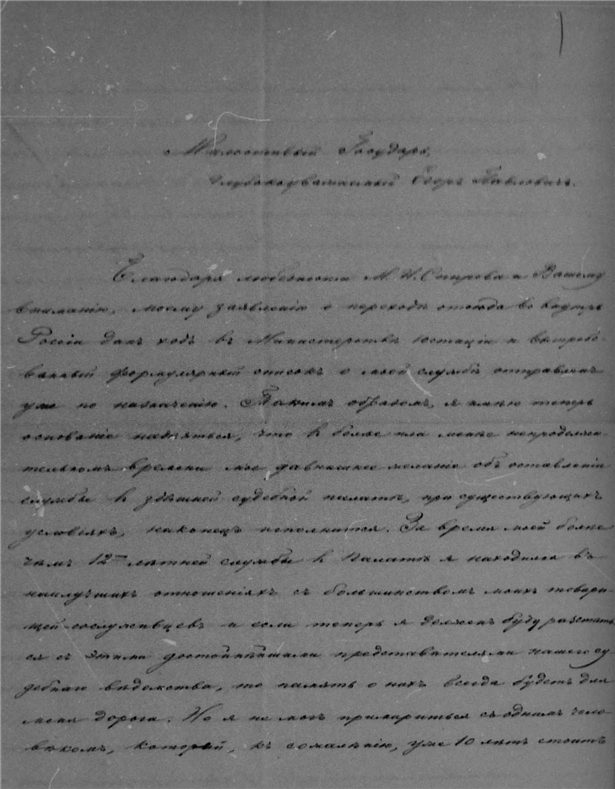 Милостивый Государь,
глубокоуважаемый Егоръ Павловичъ.
Благодаря любезности М. И. и Вашему
вниманію, моему заявленію о переходѣ отсюда во внутрь
Россіи данъ ходъ въ Министерствѣ Юстиціи и вытребо-
ванный формулярный списокъ о моей службѣ отправленъ
уже по назначенію. Такимъ образомъ, я имѣю теперь
основаніе надѣяться, что в болѣе или менѣе непродолжи-
тельномъ времени мое давнишнее желаніе объ оставленіи
службы в здѣшней судебной палатѣ, при существующихъ
условіяхъ, наконецъ исполнится. За время моей болѣе
чѣмъ 12-ти лѣтней службы в Палатѣ я находился въ
наилучшихъ отношеніяхъ съ большинствомъ моихъ товари-
щей сослуживцевъ и если теперь я долженъ буду разстать-
ся съ этими достойнѣйшими представителями нашего су-
дебнаго вѣдомства, то память о нихъ всегда будетъ для
меня дорога. Но я не могъ примириться съ однимъ чело-
вѣкомъ, который, къ сожалѣнію, уже 10 лѣтъ стоитъ